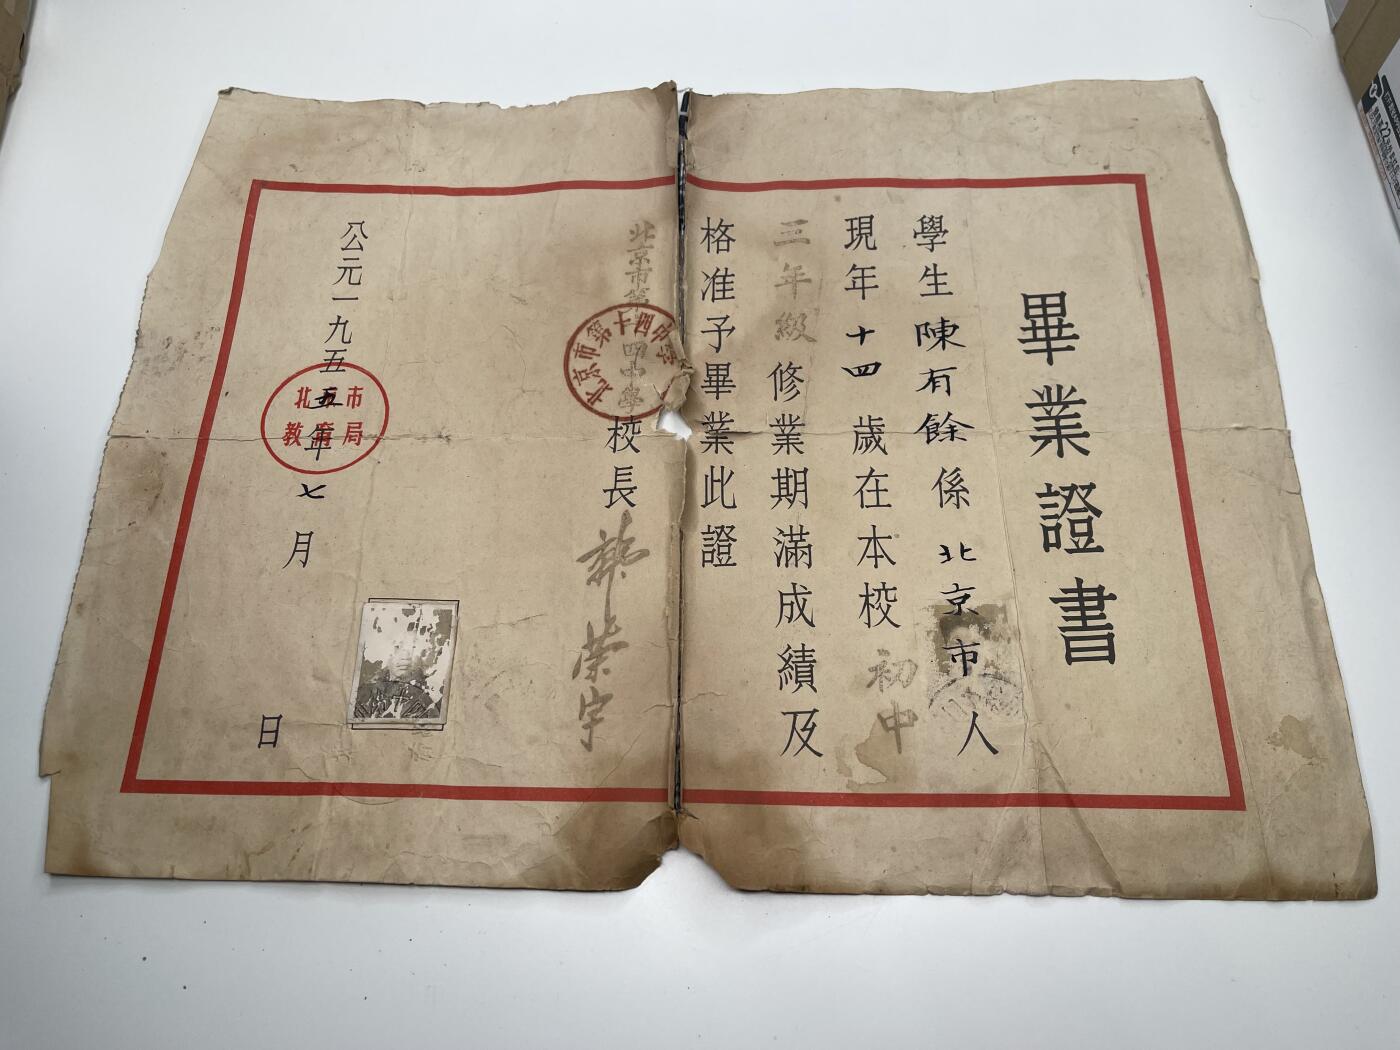 畢業證書
學生陳有餘係北京市人
現年十四歲在本校初中
三年級修業期滿成績及
格准予畢業此證
北京市第十四中學校長
榮宇
北京市第十四中學
公元一九五五年七月 日
北京市
教育局